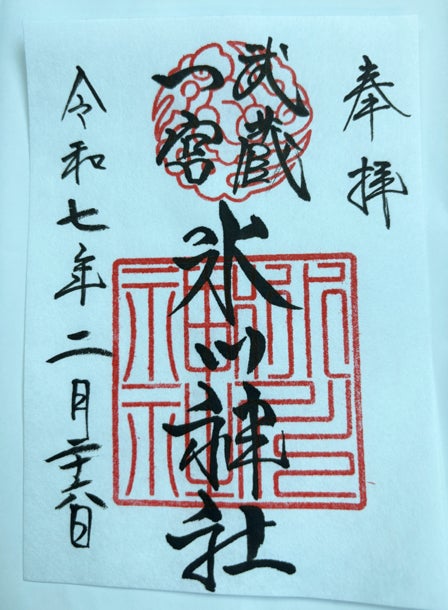 奉拝
武蔵
一宮
氷川神社
令和七年二月二十八日